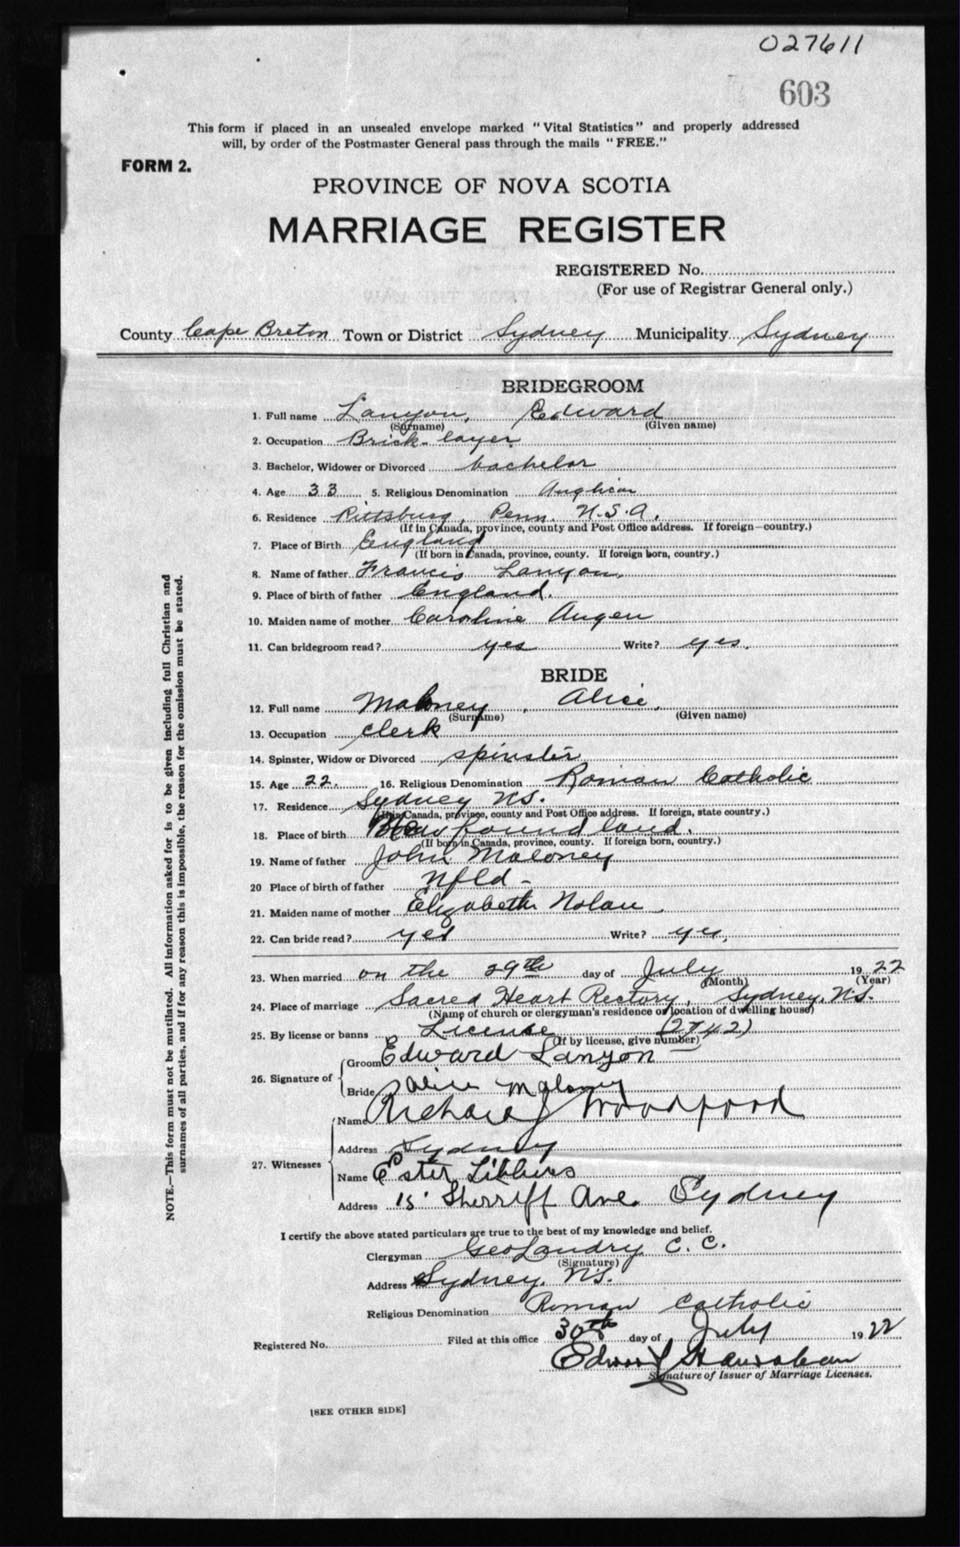 027611
603
This form if placed in an unsealed envelope marked "Vital Statistics" and properly addressed
will, by order of the Postmaster General pass through the mails "FREE."
FORM 2.
PROVINCE OF NOVA SCOTIA
MARRIAGE REGISTER
REGISTERED No.
(For use of Registrar General only.)
County Cape Breton Town or District Sydney Municipality Sydney
BRIDEGROOM
1. Full name Lanyon, Edward
(Surname) (Given name)
2. Occupation Brick-layer
3. Bachelor, Widower or Divorced bachelor
4. Age 33 5. Religious Denomination Anglican
6. Residence Pittsburg, Penn. U.S.A.
(If in Canada, province, county and Post Office address. If foreign—country.)
7. Place of Birth England
(If born in Canada, province, county. If foreign born, country.)
8. Name of father Francis Lanyon
9. Place of birth of father England.
10. Maiden name of mother Caroline Augen
11. Can bridegroom read? yes Write? yes.
BRIDE
12. Full name Maloney, Alice,
(Surname) (Given name)
13. Occupation clerk
14. Spinster, Widow or Divorced spinster
15. Age 22. 16. Religious Denomination Roman Catholic
17. Residence Sydney NS.
(If in Canada, province, county and Post Office address. If foreign, state country.)
18. Place of birth Newfoundland.
(If born in Canada, province, county. If foreign born, country.)
19. Name of father John Maloney
20 Place of birth of father Nfld-
21. Maiden name of mother Elizabeth Nolan
22. Can bride read? yes Write? yes,
23. When married on the 29th day of July 1922
(Month) (Year)
24. Place of marriage Sacred Heart Rectory, Sydney, N.S.
(Name of church or clergyman's residence or location of dwelling house)
25. By license or banns License (2742)
(If by license, give number)
26. Signature of Groom Edward Lanyon
Bride Alice Maloney
27. Witnesses Name Richard J Woodford
Address Sydney
Name Ester Libbus
Address 15 Sherriff Ave. Sydney
I certify the above stated particulars are true to the best of my knowledge and belief.
Clergyman Geo Landry C. C.
(Signature)
Address Sydney, N.S.
Religious Denomination Roman Catholic
Registered No. Filed at this office 30th day of July 1922
Edward
Signature of Issuer of Marriage Licenses.
[SEE OTHER SIDE]
NOTE.—This form must not be mutilated. All information asked for is to be given including full Christian and
surnames of all parties, and if for any reason this is impossible, the reason for the omission must be stated.